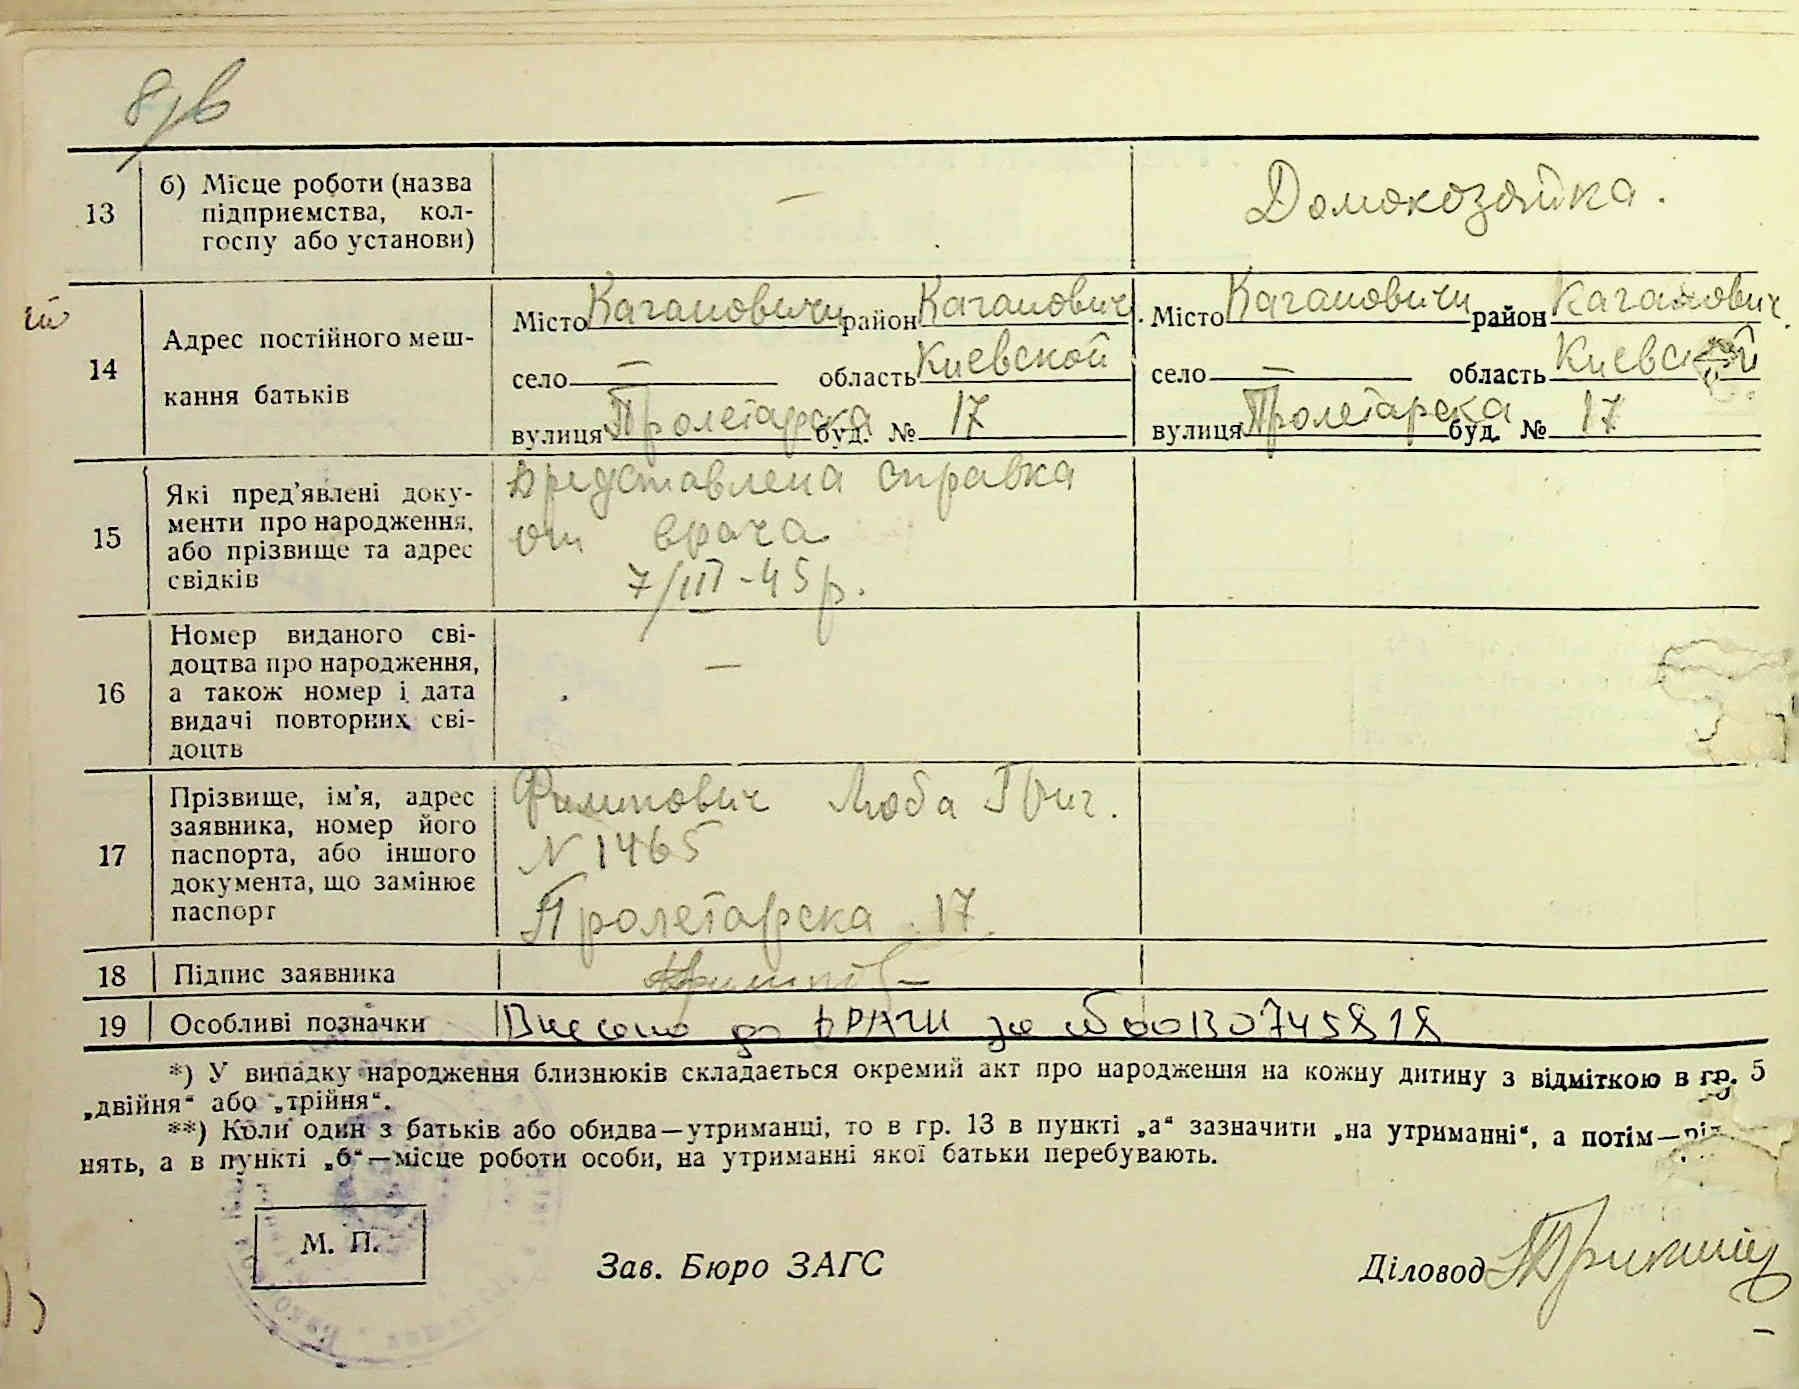 8/в
13
б) Місце роботи (назва
підприємства, кол-
госпу або установи)
—
Домохозяйка.
14
Адрес постійного меш-
кання батьків
Місто Кагановичи район Каганович.
село — область Киевской
вулиця Пролетарска буд. № 17
Місто Кагановичи район Каганович.
село — область Киевской
вулиця Пролетарска буд. № 17
15
Які пред'явлені доку-
менти про народження,
або прізвище та адрес
свідків
Представлена справка
от врача
7/III-45 р.
16
Номер виданого сві-
доцтва про народження,
а також номер і дата
видачі повторних сві-
доцтв
—
17
Прізвище, ім'я, адрес
заявника, номер його
паспорта, або іншого
документа, що замінює
паспорт
Филипович Люба Григ.
N 1465
Пролетарска 17.
18 Підпис заявника
19 Особливі позначки Внесено до ДРАЦС за № 00130745818
*) У випадку народження близнюків складається окремий акт про народження на кожну дитину з відміткою в гр. 5
„двійня“ або „трійня“.
**) Коли один з батьків або обидва—утриманці, то в гр. 13 в пункті „а“ зазначити „на утриманні“, а потім—
нять, а в пункті „б“—місце роботи особи, на утриманні якої батьки перебувають.
М. П.
Зав. Бюро ЗАГС
Діловод